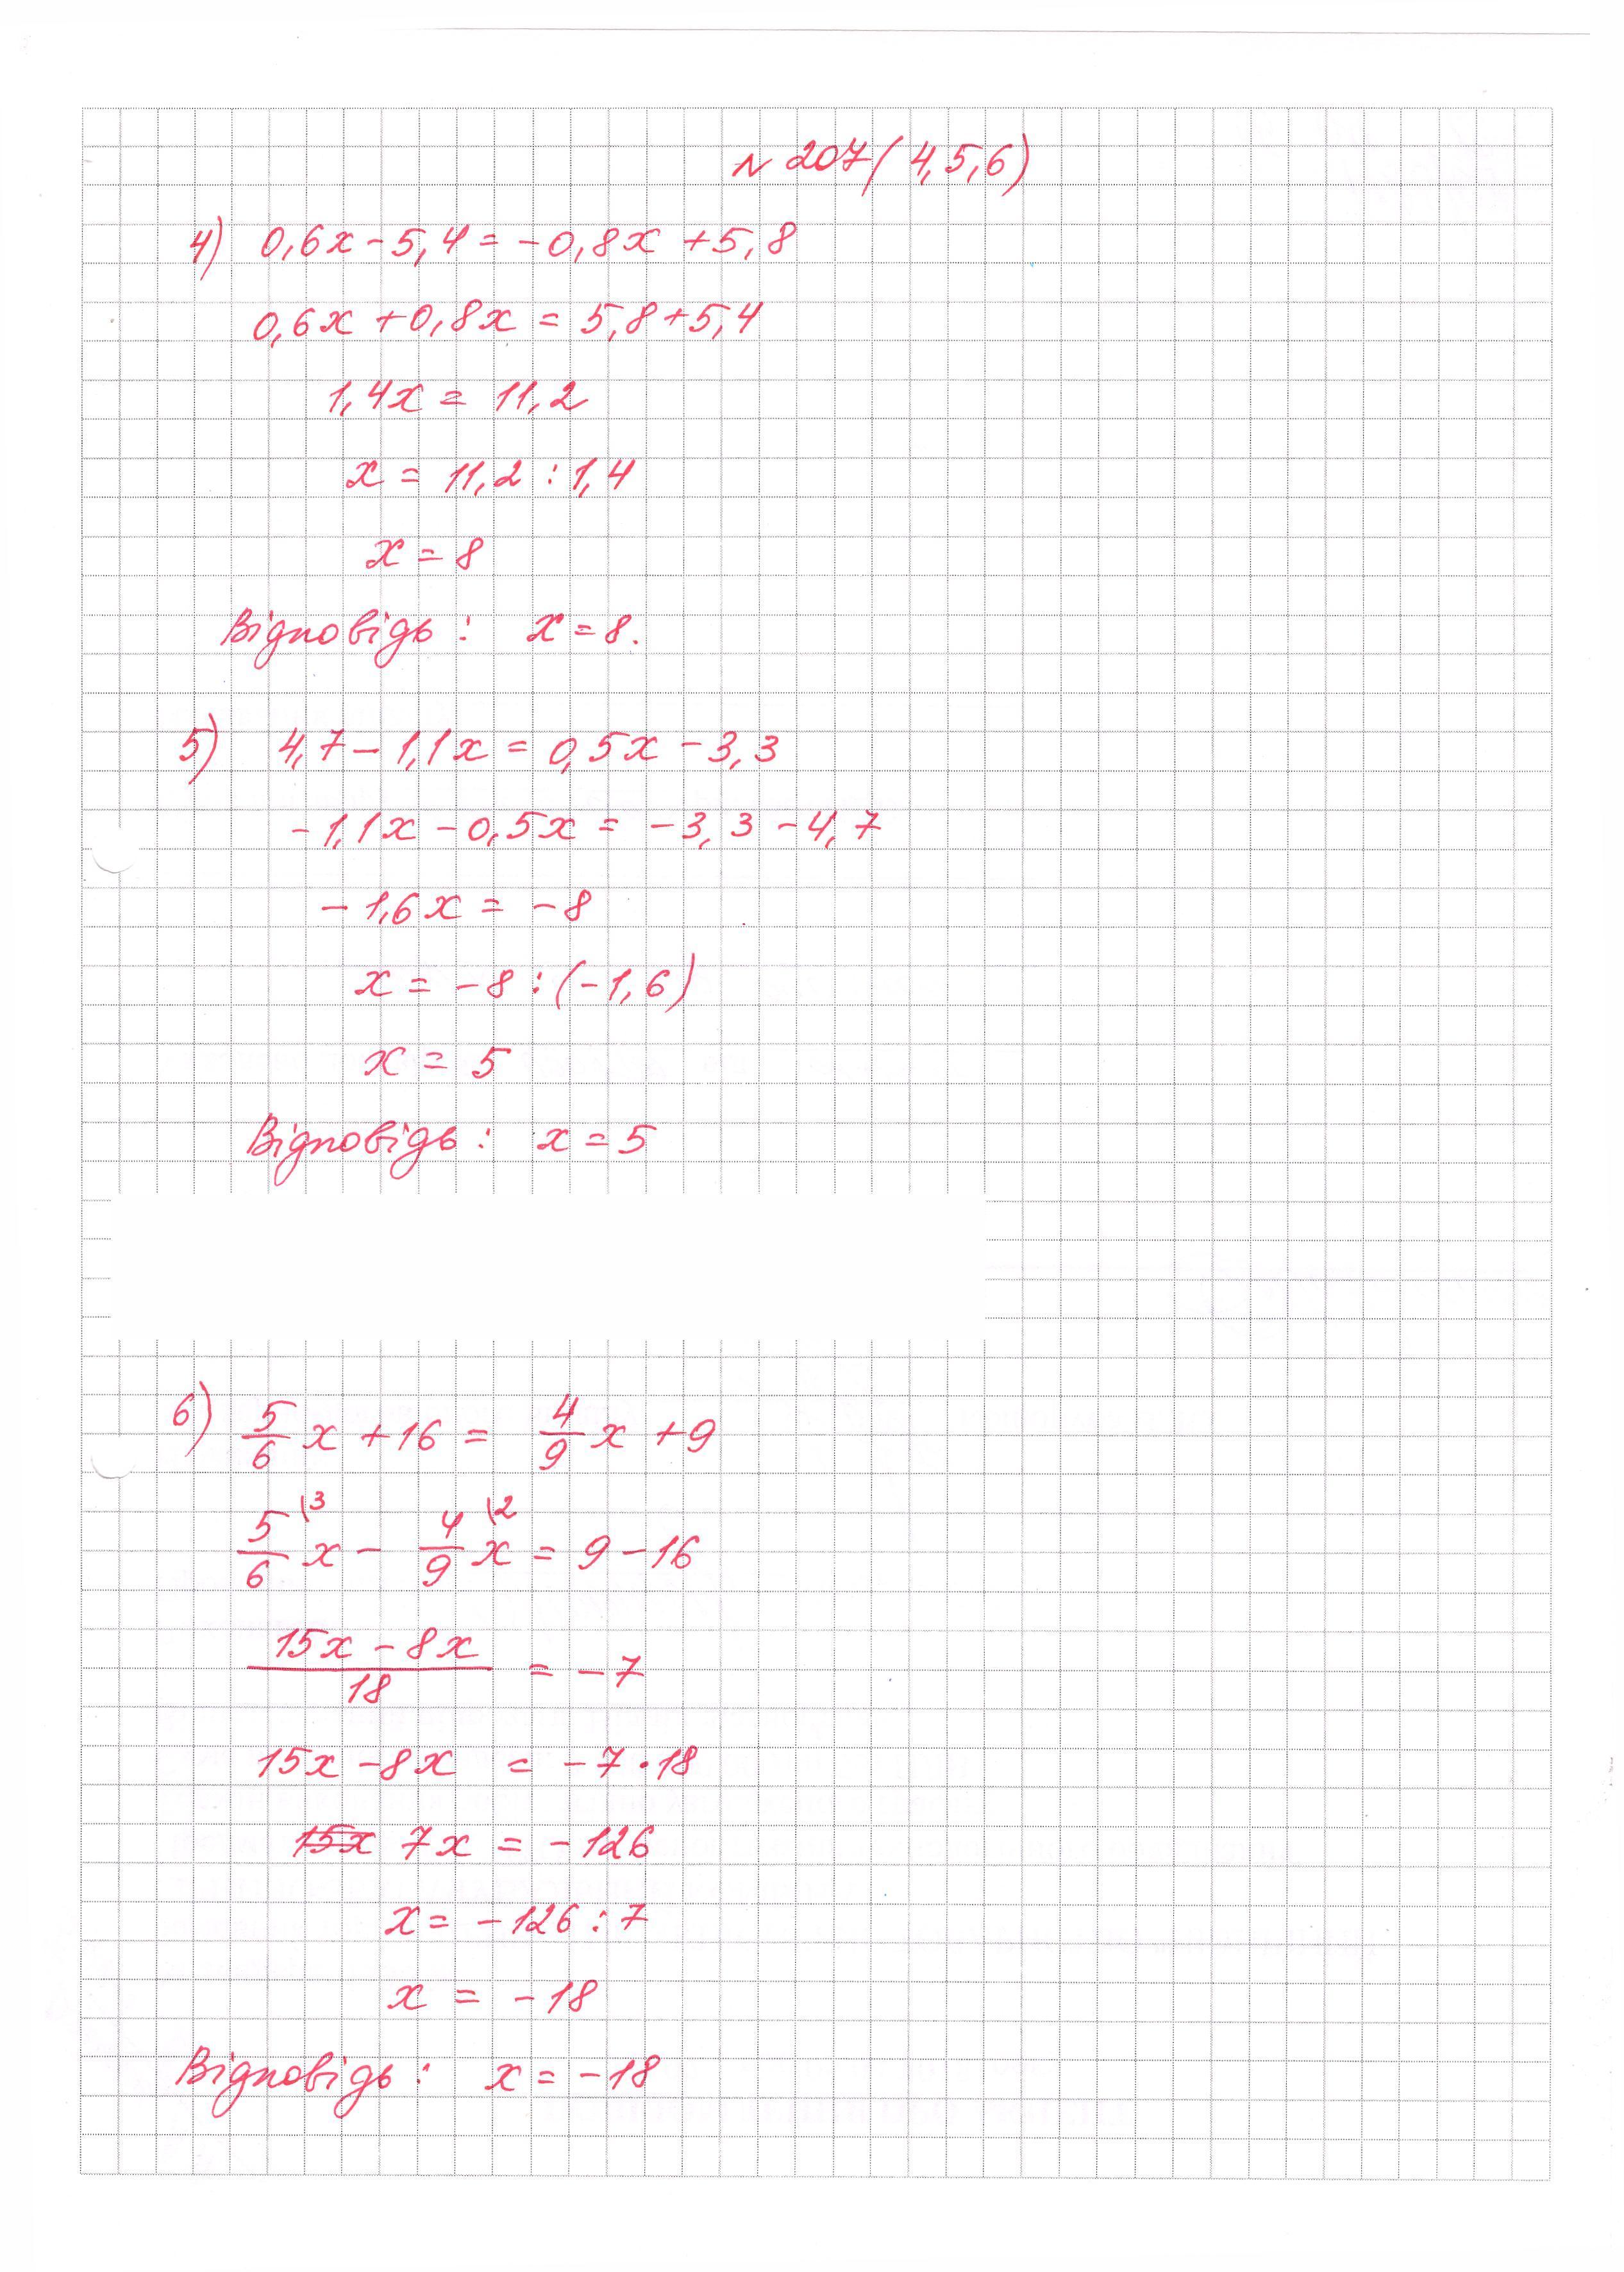 № 207 (4,5,6)
4) 0,6x - 5,4 = -0,8x + 5,8
0,6x + 0,8x = 5,8 + 5,4
1,4x = 11,2
x = 11,2 : 1,4
x = 8
Відповідь: x = 8.
5) 4,7 - 1,1x = 0,5x - 3,3
-1,1x - 0,5x = -3,3 - 4,7
-1,6x = -8
x = -8 : (-1,6)
x = 5
Відповідь: x = 5
6) 5/6 x + 16 = 4/9 x + 9
5/6 \3 x - 4/9 \2 x = 9 - 16
15x - 8x / 18 = -7
15x - 8x = -7 · 18
15x 7x = -126
x = -126 : 7
x = -18
Відповідь: x = -18